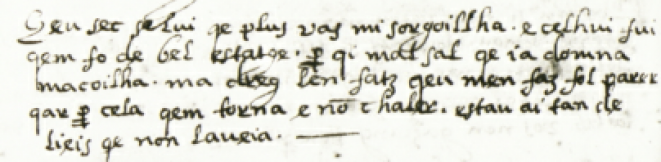 Qeu sec selui qe plus vas mi sorgoillha · e celhui fui
qem fo de bel estatge · ꝑ qi mal sal qe ia domna
macoilha · ma dreg len fatz qeu men faz fol parer
qar ꝑ cela qem torna e nō chaler · estau ai tan de
lieis qe non laueia ·